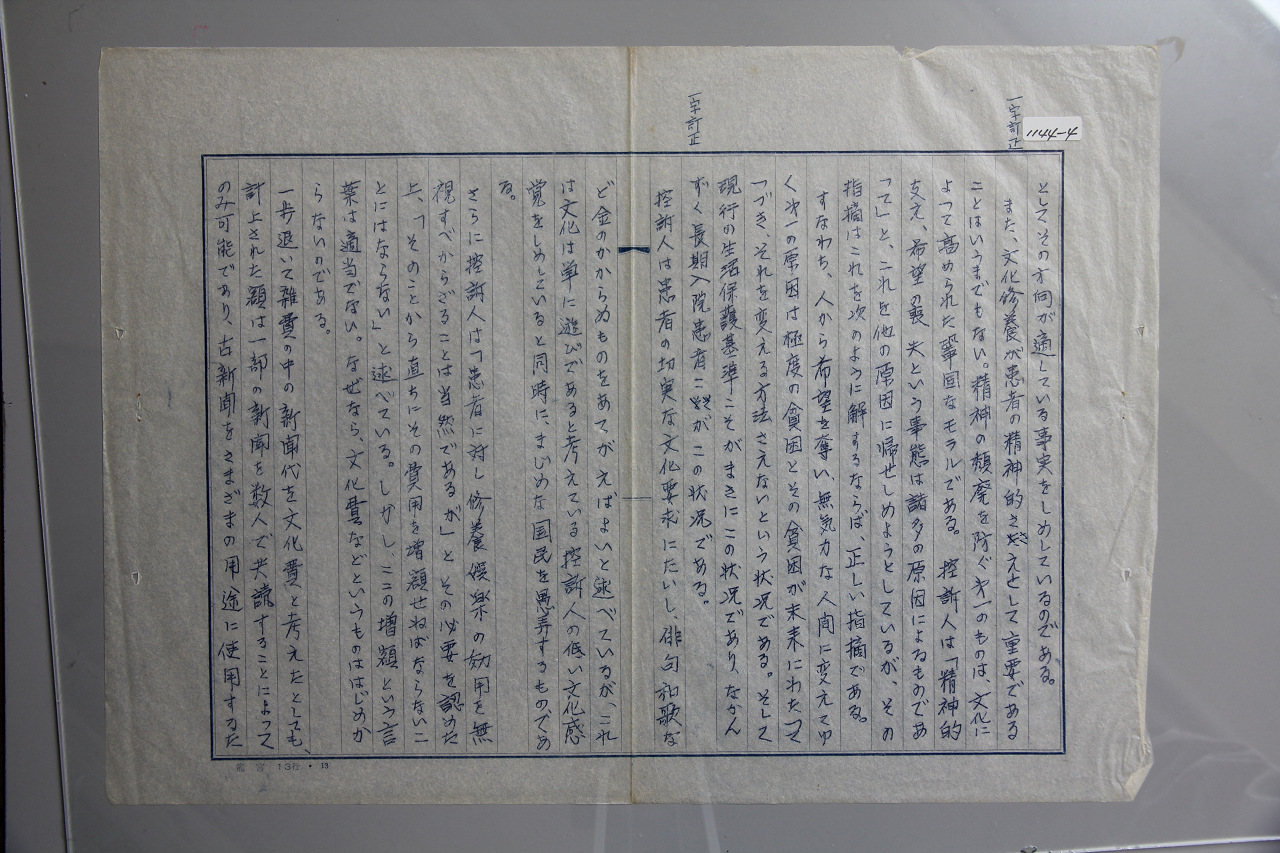 1144-4
一字訂正
一字訂正
としてその方向が適している事実をしめしているのである。
また、文化修養が患者の精神的ささえとして重要である
ことはいうまでもない。精神の頽廃を防ぐ才一のものは、文化に
よって高められた鞏固なモラルである。控訴人は「精神的
支え、希望の喪失という事態は諸多の原因によるものであ
って」と、これを他の原因に帰せしめようとしているが、その
指摘はこれを次のように解するならば、正しい指摘である。
すなわち、人から希望を奪い、無気力な人間に変えてゆ
く才一の原因は極度の貧困とその貧困が未来にわたって
つづき、それを変える方法さえないという状況である。そして
現行の生活保護基準こそがまさにこの状況であり、なかん
ずく長期入院患者こそがこの状況である。
控訴人は患者の切実な文化要求にたいし、俳句和歌な
ど金のかからぬものをあてがえばよいと述べているが、これ
は文化は単に遊びであると考えている控訴人の低い文化感
覚をしめしていると同時に、まじめな国民を愚弄するものであ
る。
さらに控訴人は「患者に対し修養娯楽の効用を無
視すべからざることは当然であるが」とその必要を認めた
上、「そのことから直ちにその費用を増額せねばならないこ
とにはならない」と述べている。しかし、ここの増額という言
葉は適当でない。なぜなら、文化費などというものははじめか
らないのである。
一歩退いて雑費の中の新聞代を文化費と考えたとしても、
計上された額は一部の新聞を数人で共読することによって
のみ可能であり、古新聞をさまざまの用途に使用するた
龍宮 13行・13